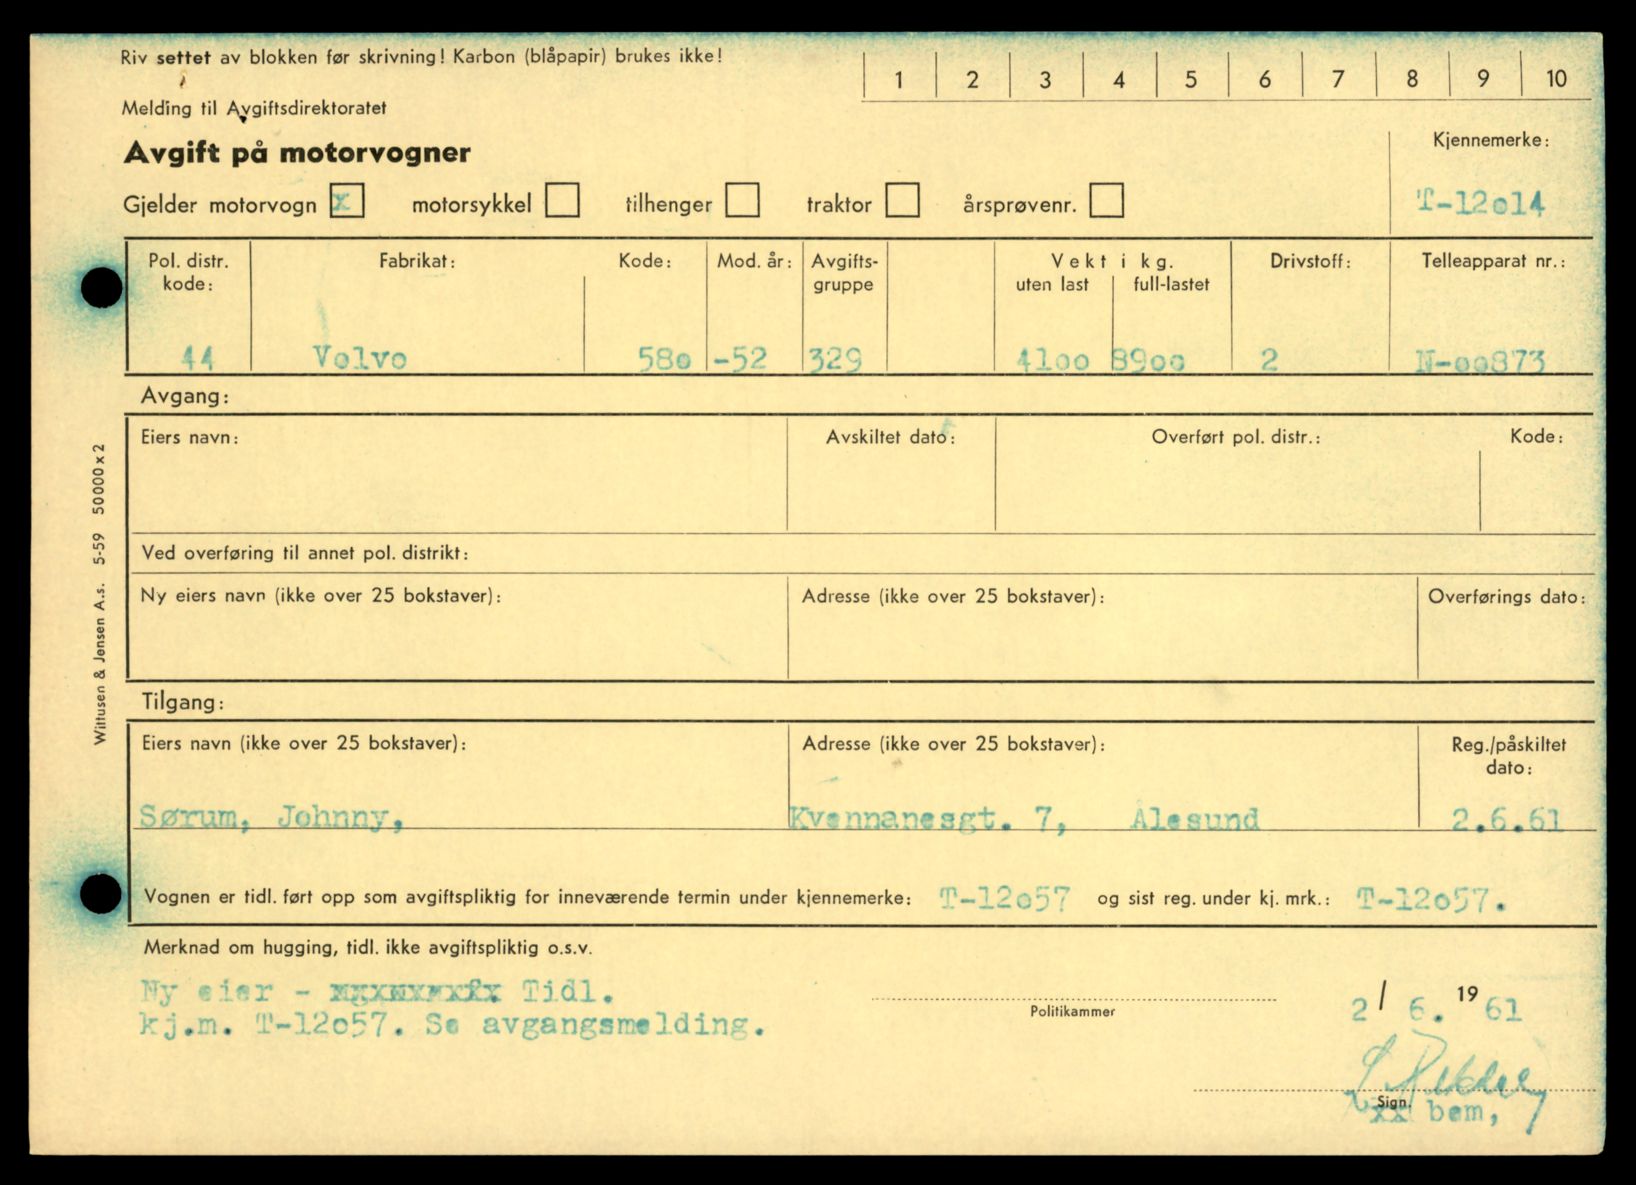 Riv settet av blokken før skrivning! Karbon (blåpapir) brukes ikke!
1 2 3 4 5 6 7 8 9 10
Melding til Avgiftsdirektoratet
Avgift på motorvogner
Kjennemerke:
Gjelder motorvogn x motorsykkel tilhenger traktor årsprøvenr.
T-12o14
Pol. distr. kode: Fabrikat: Kode: Mod. år: Avgifts-gruppe Vekt i kg. uten last full-lastet Drivstoff: Telleapparat nr.:
44 Volvo 58o -52 329 41oo 89oo 2 N-oo873
Avgang:
Eiers navn: Avskiltet dato: Overført pol. distr.: Kode:
Ved overføring til annet pol. distrikt:
Ny eiers navn (ikke over 25 bokstaver): Adresse (ikke over 25 bokstaver): Overførings dato:
Tilgang:
Eiers navn (ikke over 25 bokstaver): Adresse (ikke over 25 bokstaver): Reg./påskiltet dato:
Sørum, Johnny, Kvennanesgt. 7, Ålesund 2.6.61
Vognen er tidl. ført opp som avgiftspliktig for inneværende termin under kjennemerke: T-12o57 og sist reg. under kj. mrk.: T-12o57.
Merknad om hugging, tidl. ikke avgiftspliktig o.s.v.
Ny eier - Tidl.
kj.m. T-12o57. Se avgangsmelding.
Politikammer
2/ 6. 1961
Sign.
bem,
Wittusen & Jensen A.s. 5-59 50000 x 2